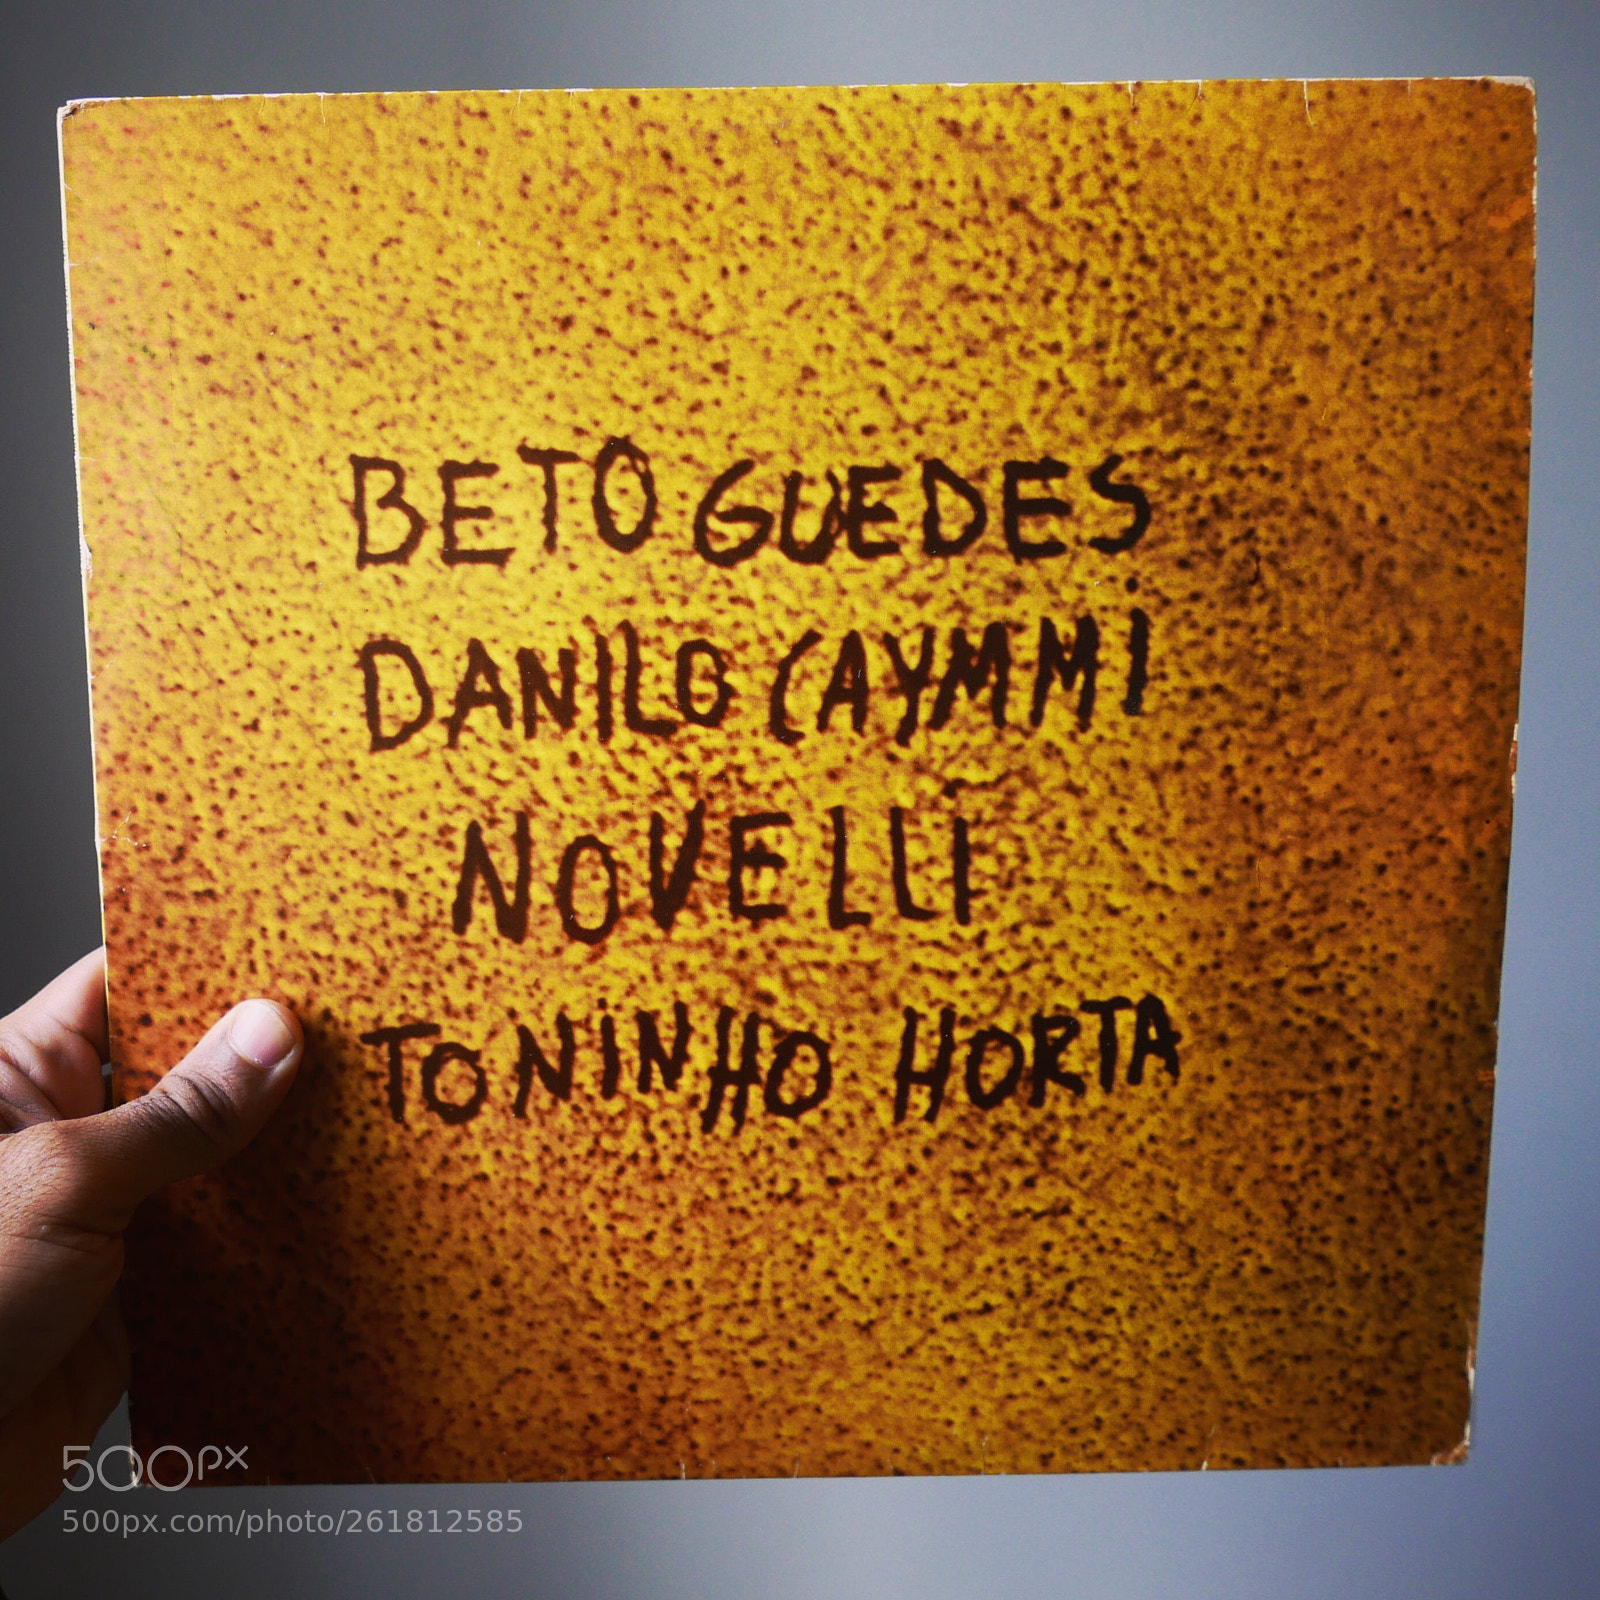 BETO GUEDES
DANILO CAYMMi
NOVELLI
TONiNHO HORTA
500px
500px.com/photo/261812585